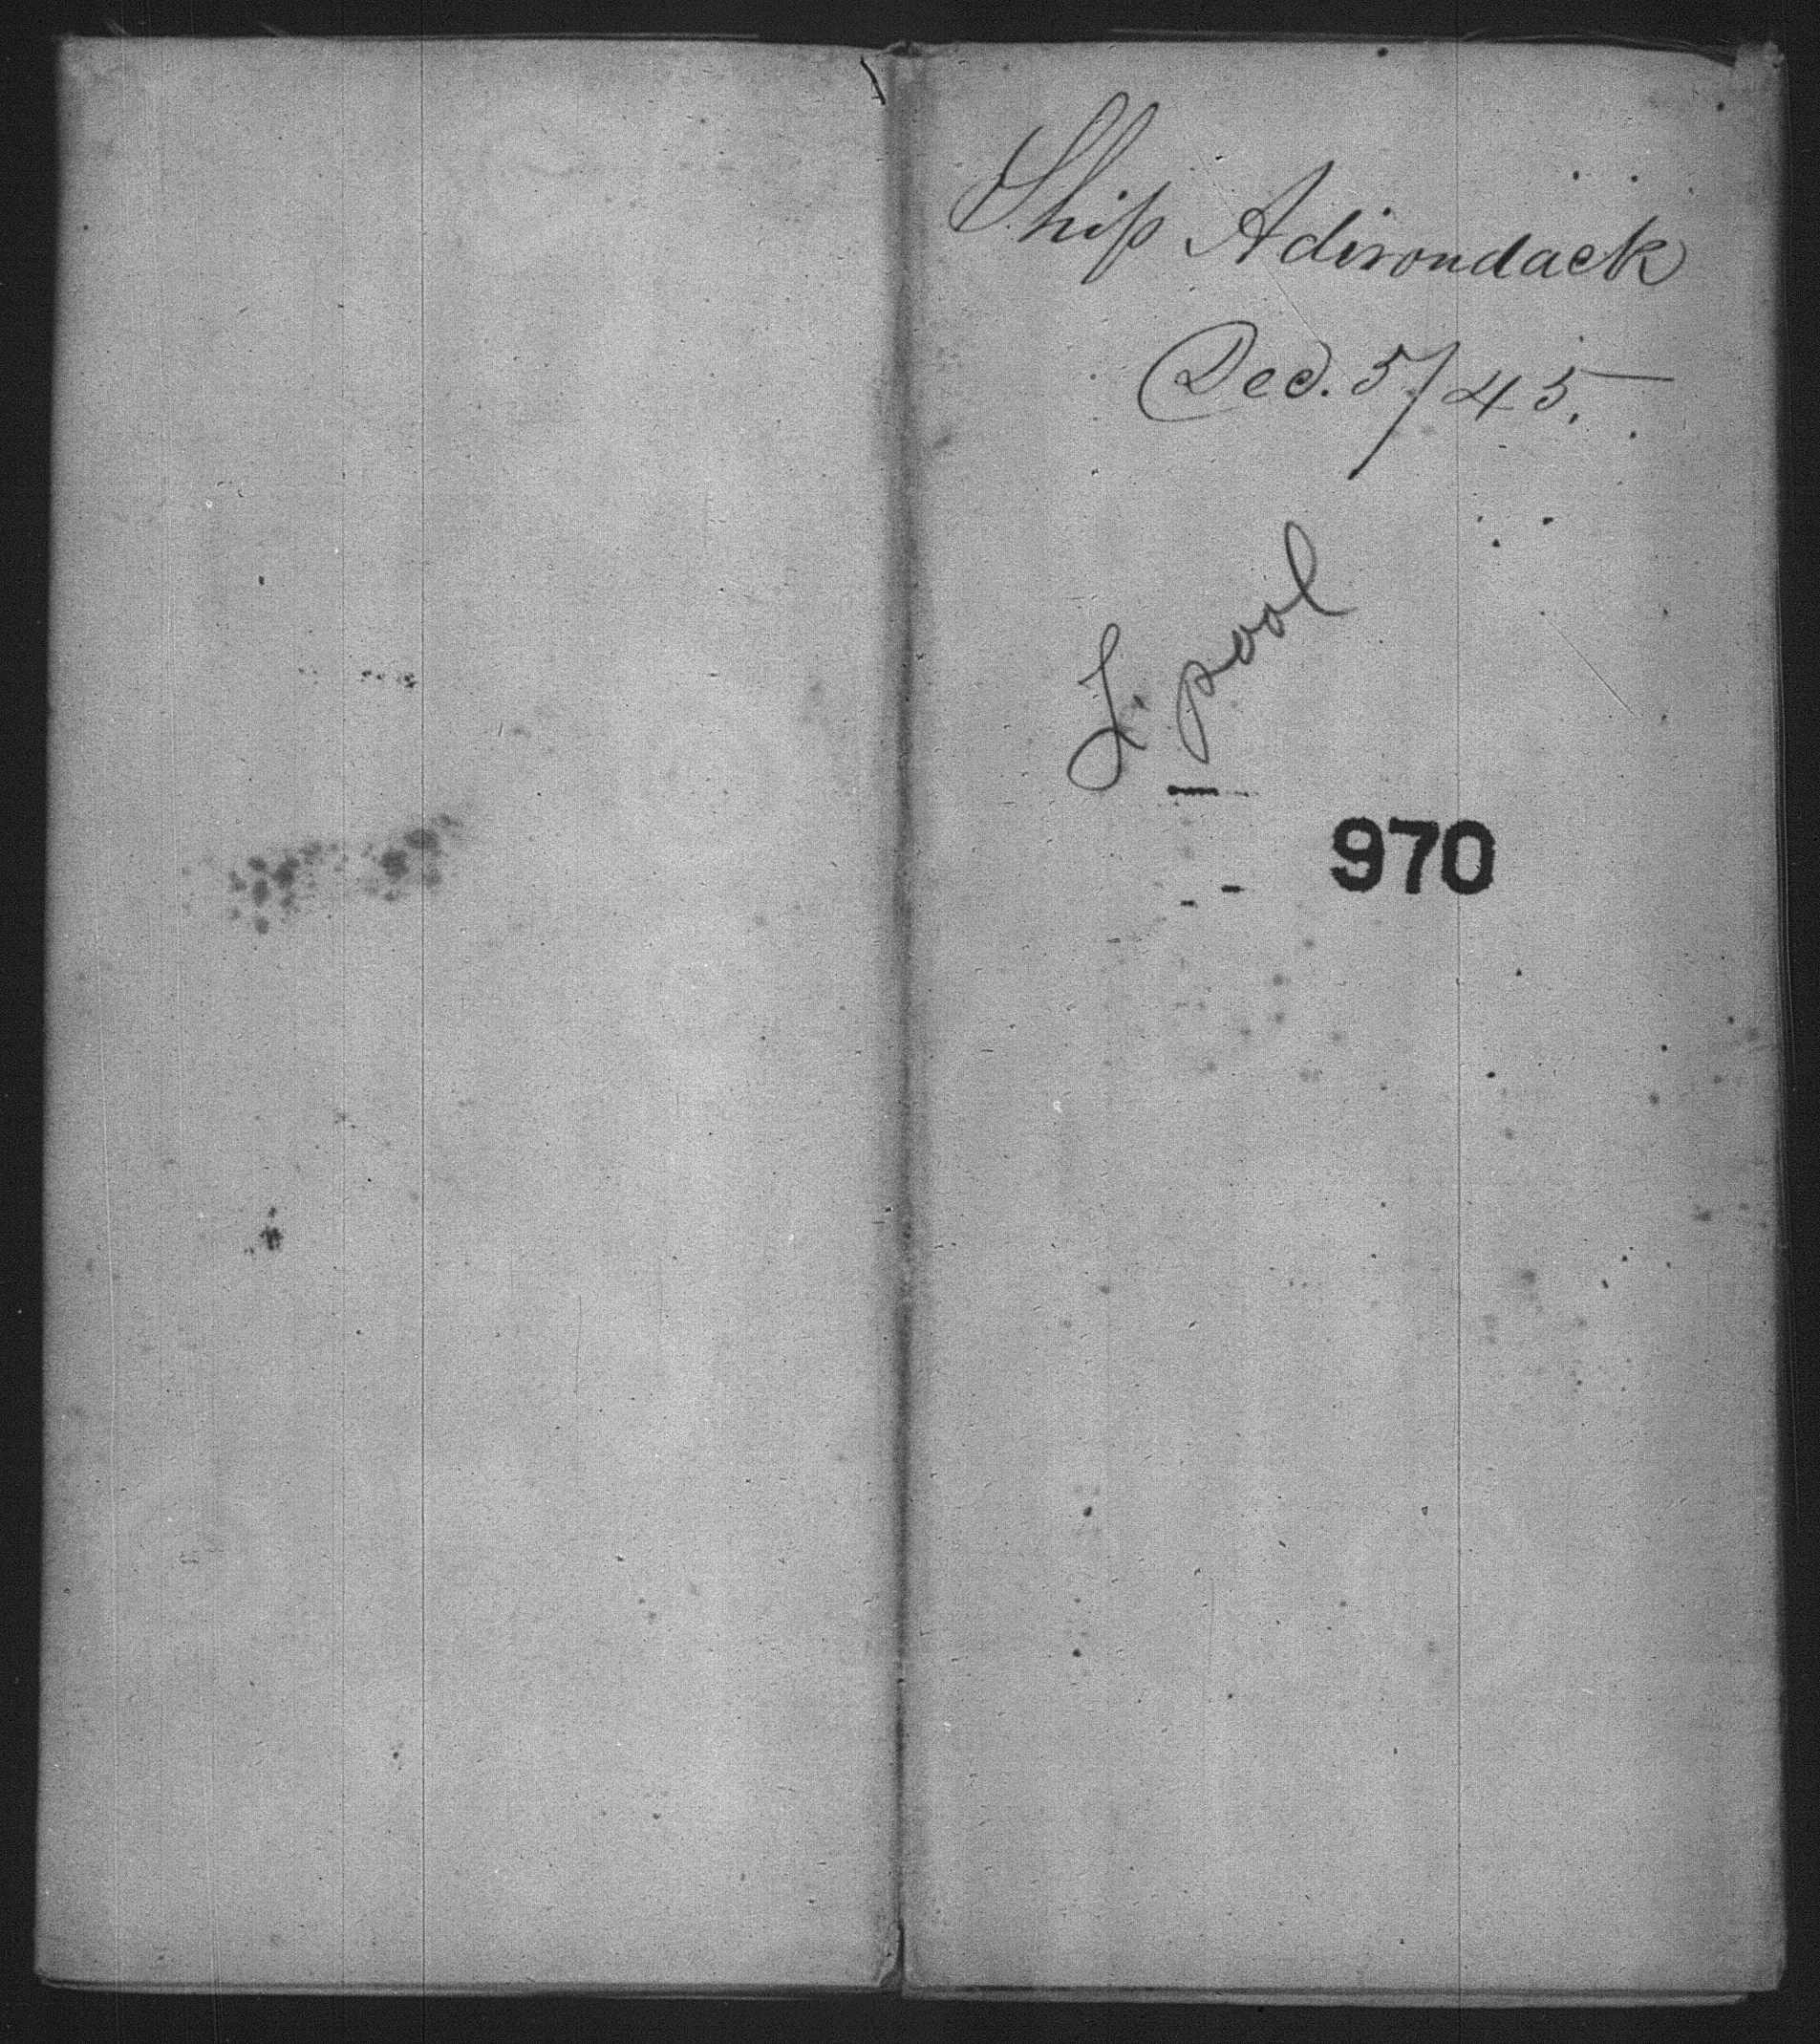 Ship Adirondack
Dec. 5/45.
L. pool
970